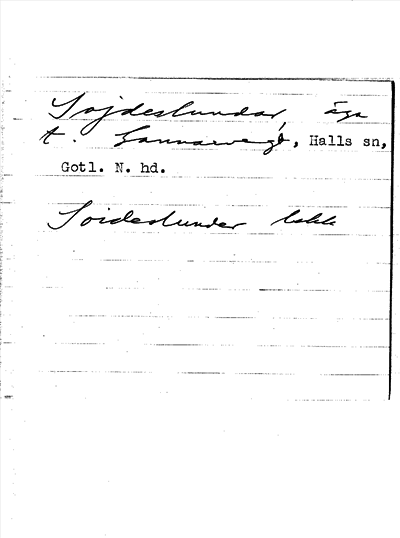 Sojdeslundar, äga
t. Gannarve gd, Halls sn,
Gotl. N. hd.
Soideslunder